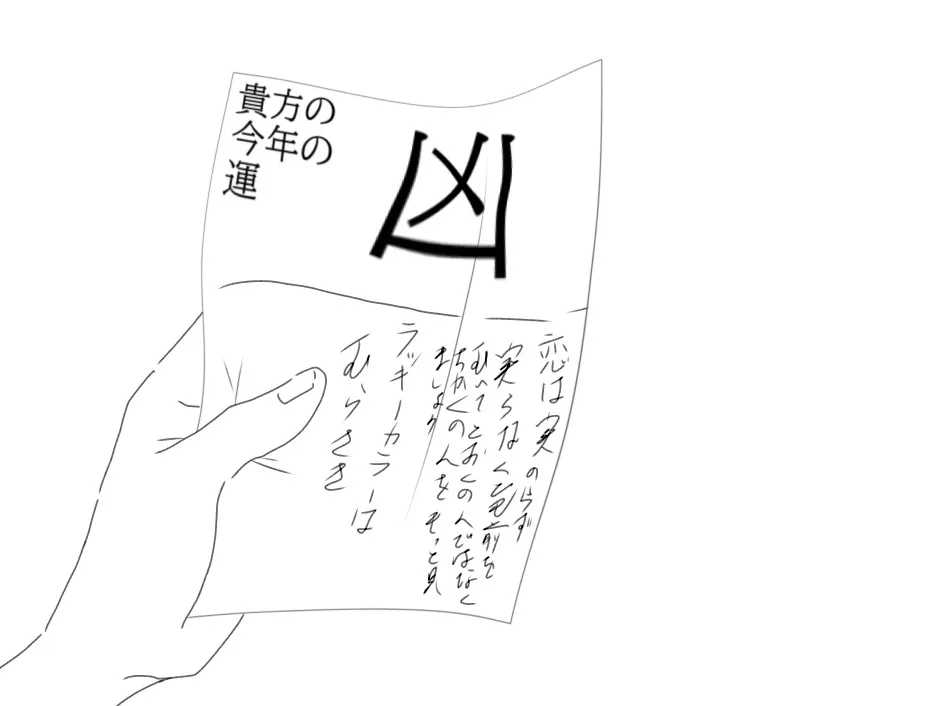 貴方の
今年の
運
凶
恋は実のらず
実らなく
むいてとおくの人ではなく
ちかくの人をもっと見
ましょう
ラッキーカラーは
むらさき